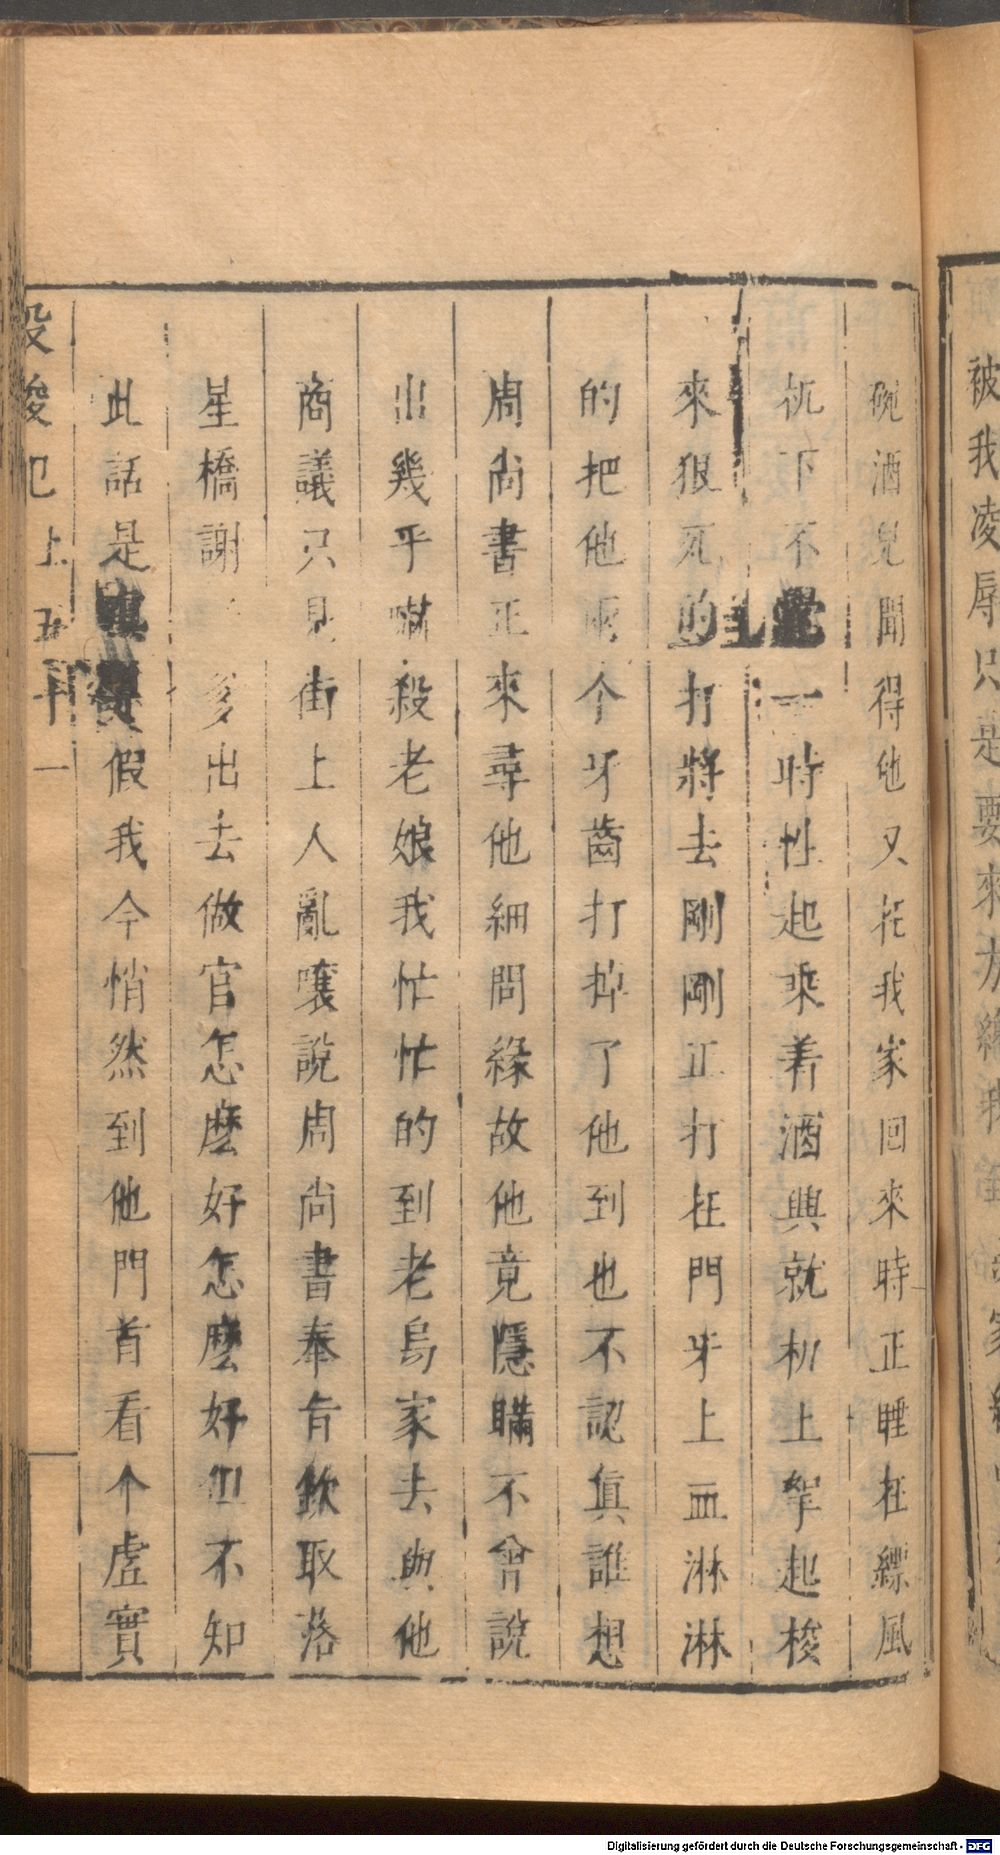 被我凌辱只是要來
碗酒兒聞得他又在我家回來時正睡在縹風
机下不覺一時性起乘着酒興就机上拏起梭
來狠死的打將去剛剛正打在門牙上血淋淋
的把他兩个牙齒打掉了他到也不認真誰想
周尚書正來尋他細問緣故他竟隱瞞不曾說
出幾乎嚇殺老娘我忙忙的到老烏家去與他
商議只見街上人亂嚷說周尚書奉旨欽取洛
星橋謝 出去做官怎麼好怎麼好但不知
此話是真假我今悄然到他門首看个虛實
投梭記上 五十一
Digitalisierung gefördert durch die Deutsche Forschungsgemeinschaft - DFG